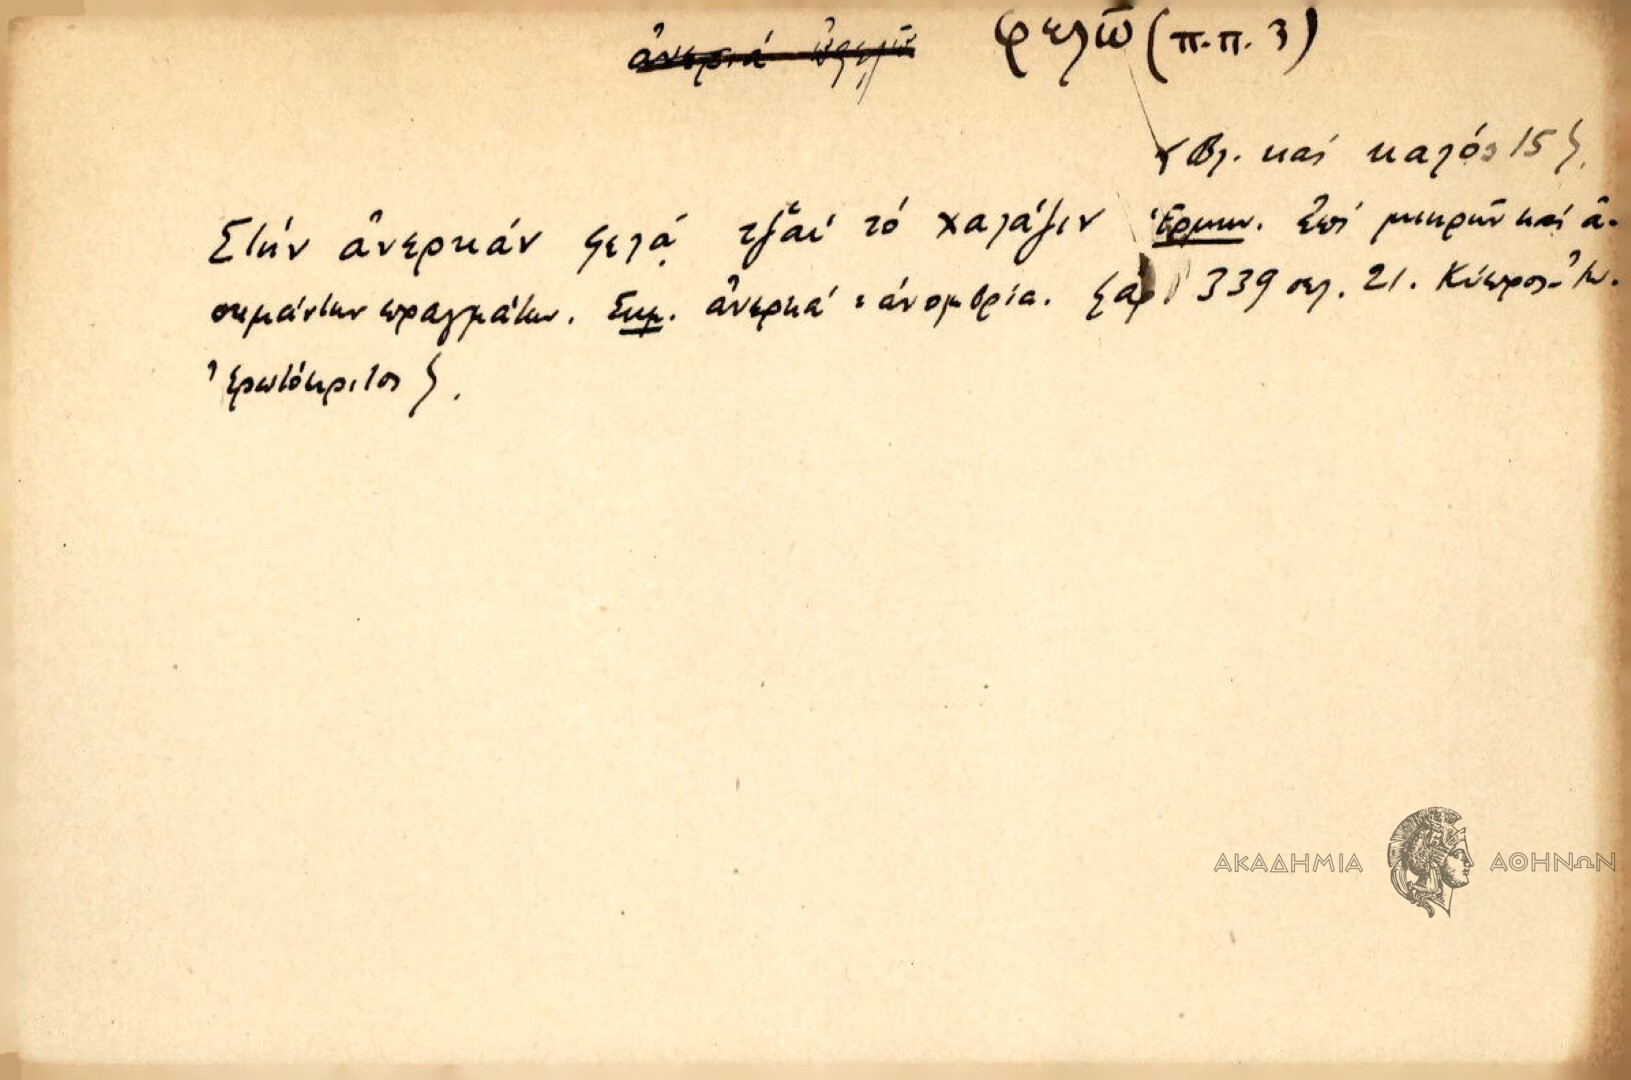 ~~ἀνεριά ὠφελῶ~~ φελῶ (π.π. 3)
{Βλ. καί καλός 15}.
Στήν ἀνερκάν φελᾷ τζ̌αί τό χαλάζιν Ἑρμην. Ἐπί μικρῶν καί ἀ-
σημάντων πραγμάτων. Σημ. ἀνερκά = ἀνομβρία. ἀρ 339 σελ. 21. Κύπρος - Ἰω.
Ἐρωτόκριτος}.
ΑΚΑΔΗΜΙΑ ΑΘΗΝΩΝ